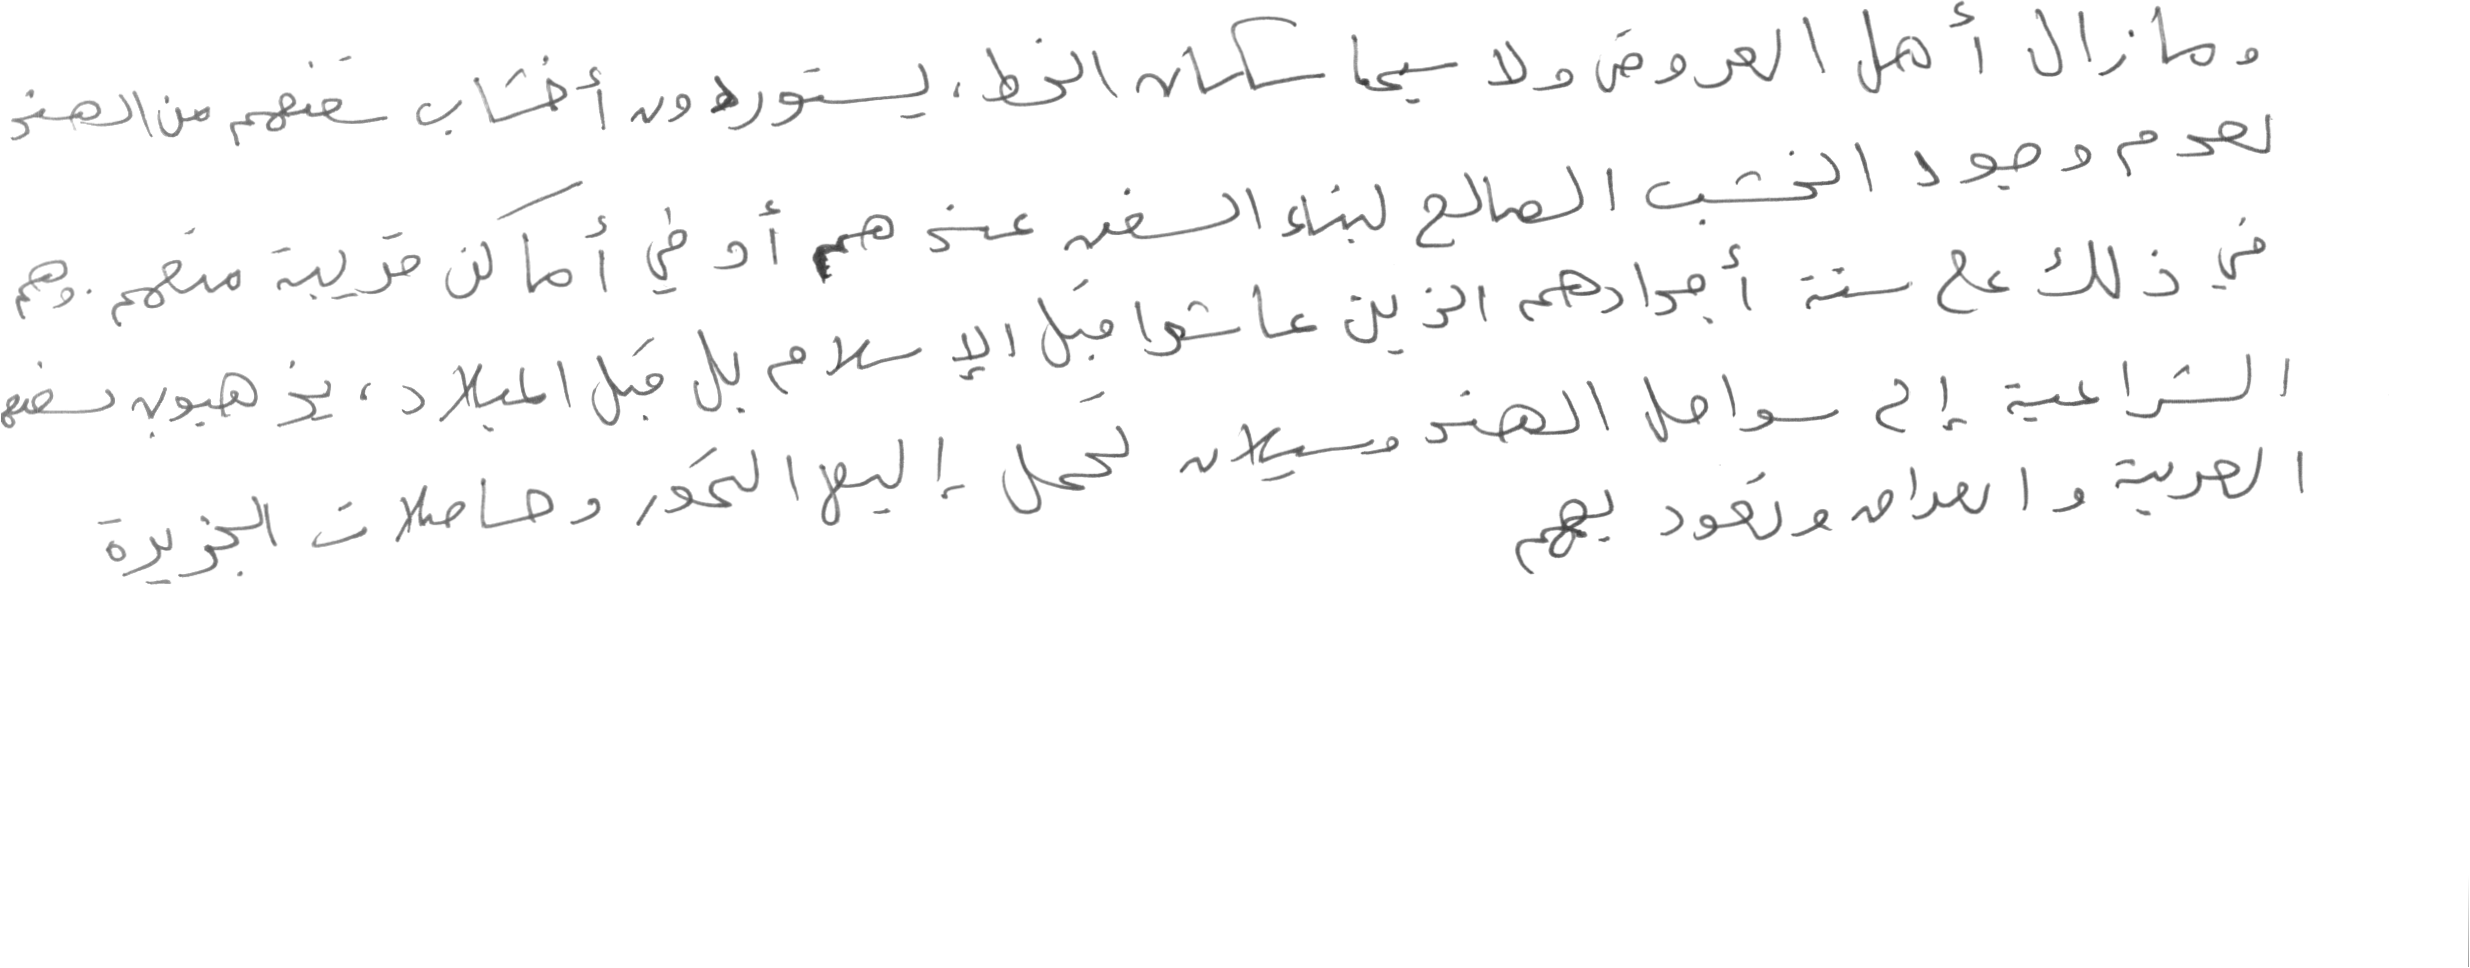 وما زال أهل العروض ولا سيما سكان الخط، يستوردون أخشاب سفنهم من الهند
لعدم وجود الخشب الصالح لبناء السفن عندهم أو في أماكن قريبة منهم. وهم
في ذلك على سنة أجدادهم الذين عاشوا قبل الإسلام بل قبل الميلاد، يذهبون بسفنهم
الشراعية إلى سواحل الهند وسيلان تحمل إليها التمور وحاصلات الجزيرة
العربية والعراق وتعود بهم